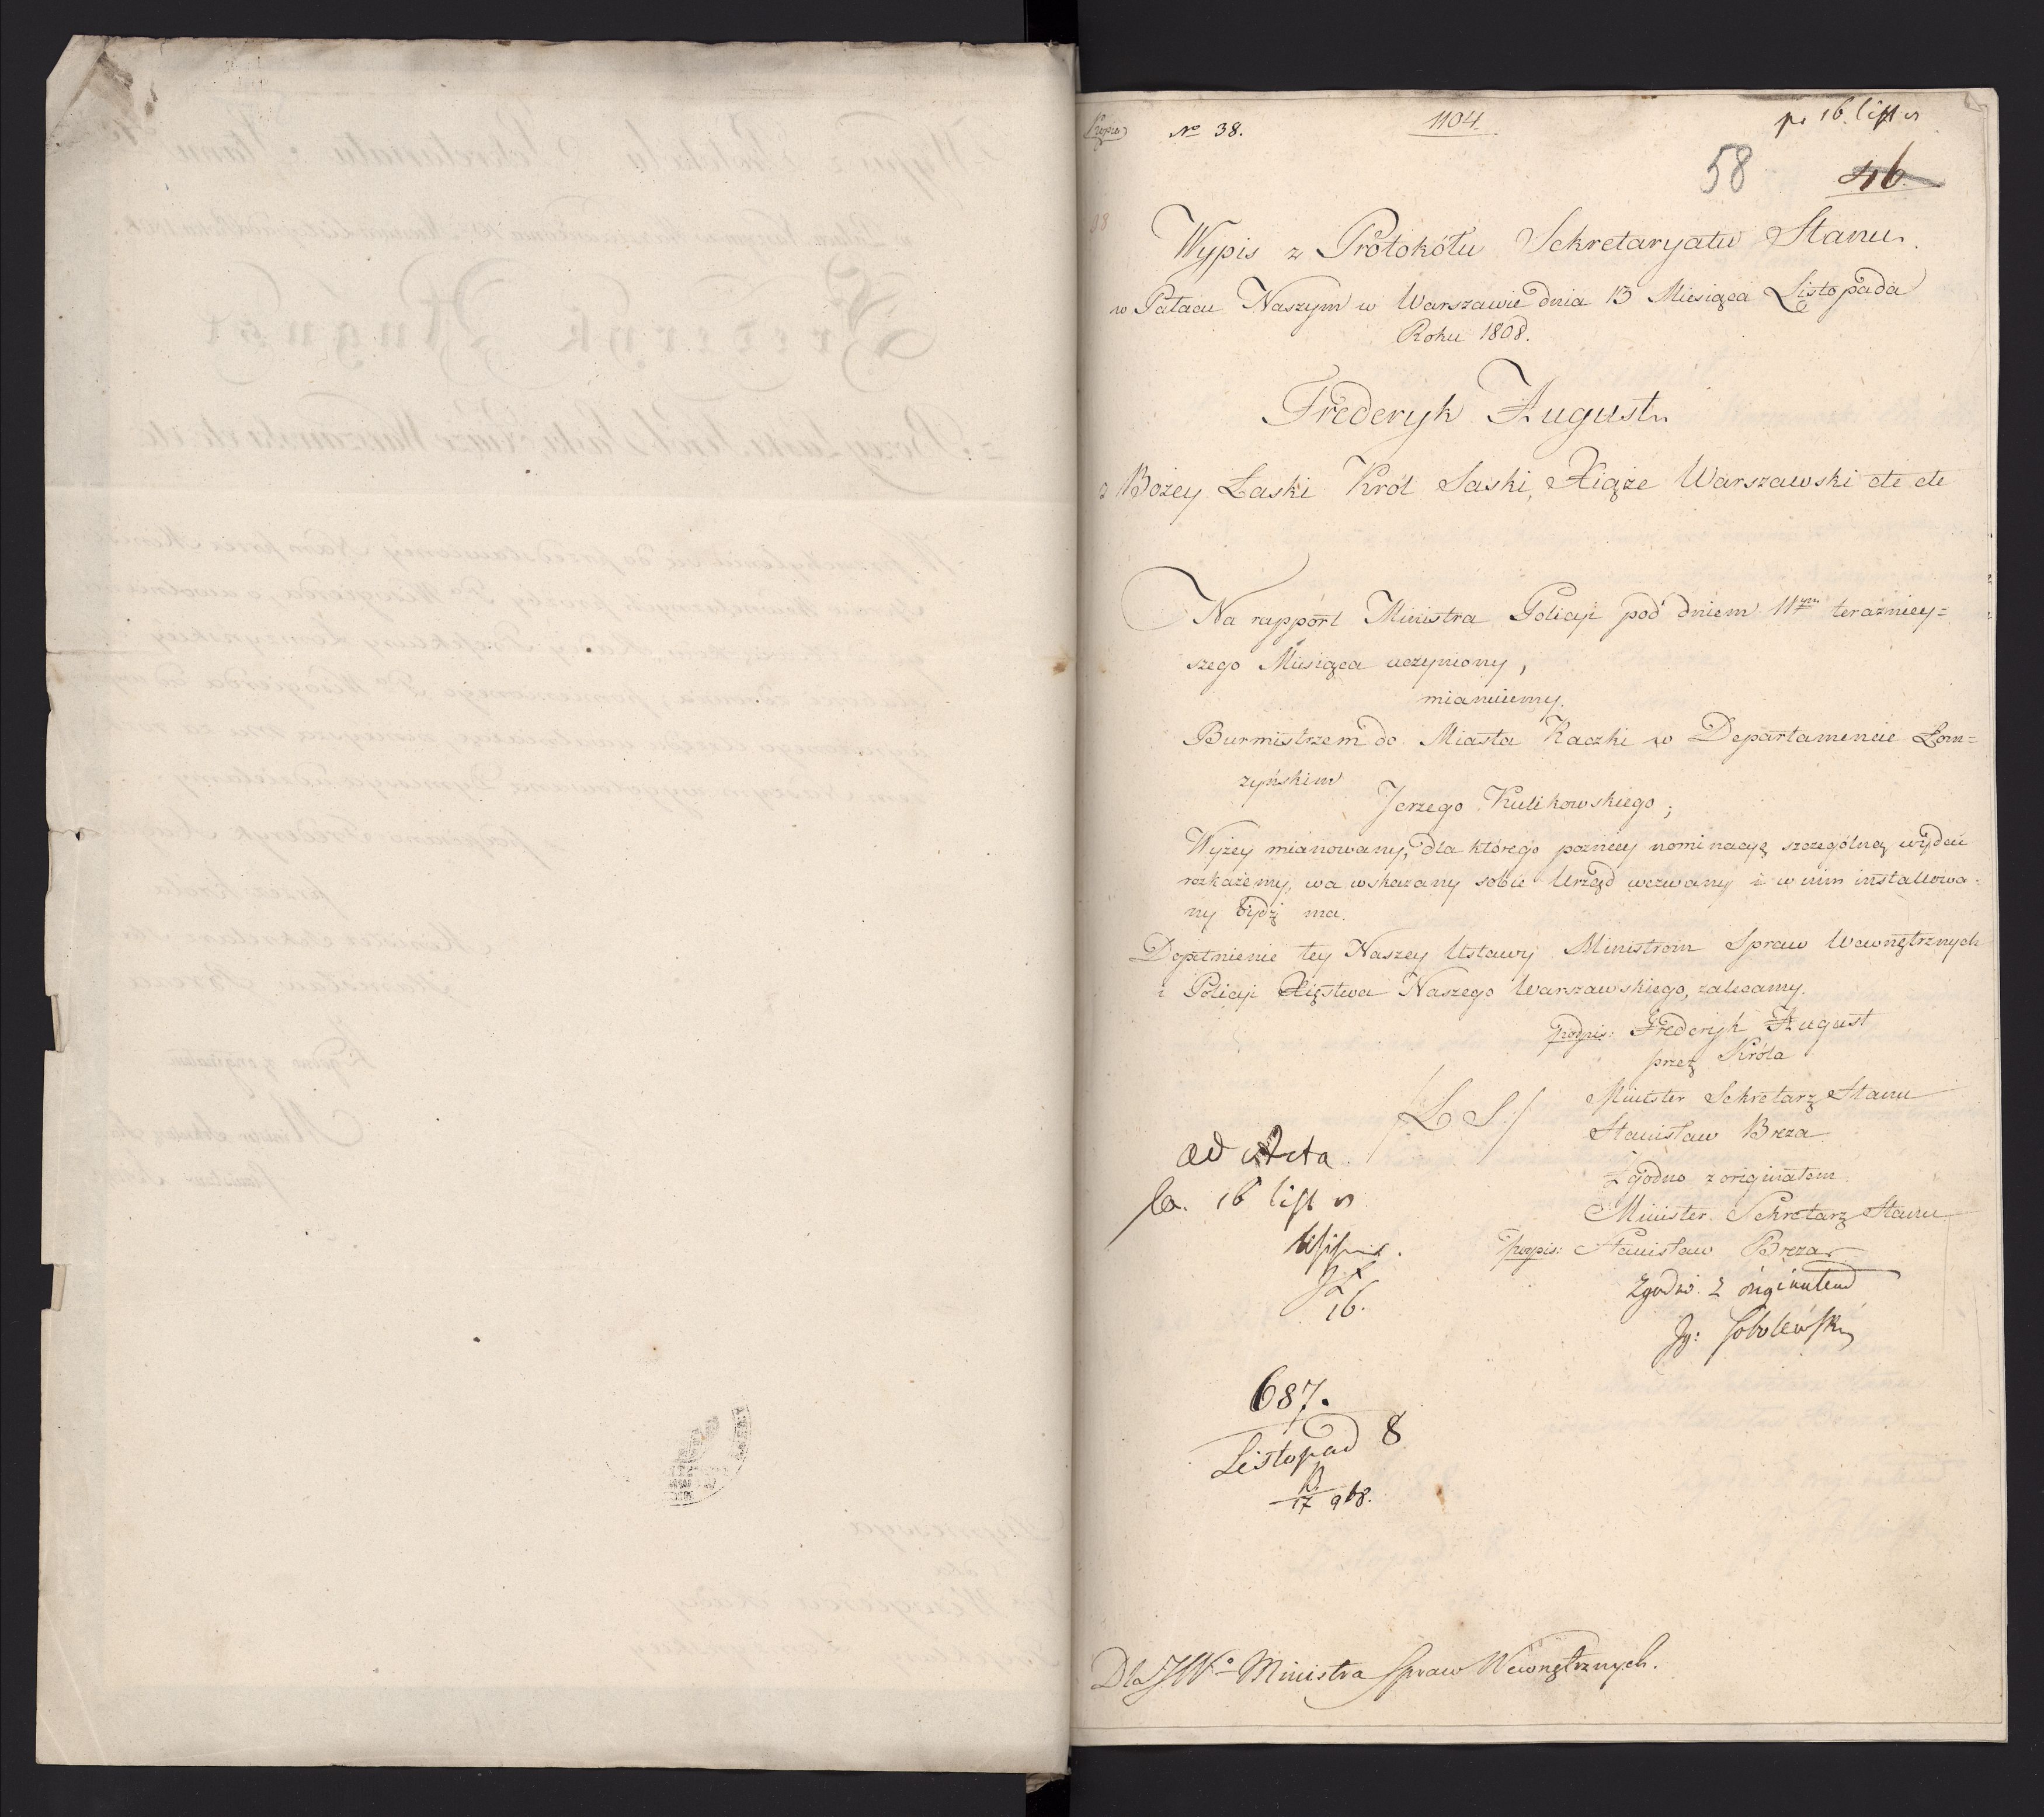 Kopia
No 38.
1104.
pr 16 list
58
46.
Wypis z Protokółu Sekretaryatu Stanu
w Pałacu Naszym w Warszawie dnia 13 Miesiąca Listopada
Roku 1808.
Frederyk August
z Bożey Łaski Król Saski, Xiąże Warszawski etc etc
Na rapport Ministra Policyi pod dniem 11ym terazniey=
szego Miesiąca uczyniony,
mianuiemy.
Burmistrzem do Miasta Raczki w Departamencie Łom=
zyńskim
Jerzego Kulikowskiego;
Wyżey mianowany, dla którego pozniey nominacyę szczególną wydać
rozkażemy, na wskazany sobie Urząd wezwany i w nim installowa-
ny bydź ma.
Dopełnienie tey Naszey Ustawy Ministrom Spraw Wewnętrznych
i Policyi Xięstwa Naszego Warszawskiego, zalecamy.
podpis: Frederyk August
przez Króla
/L S/
Minister Sekretarz Stanu
Stanisław Breza
Zgodno z originałem
Minister Sekretarz Stanu
podpis: Stanisław Breza
Zgodno z originałem
Jg: Sobolewski
ad Acta
16 list
16.
687.
Listopad 8
17 9b8.
Dla JWo Ministra Spraw Wewnętrznych.